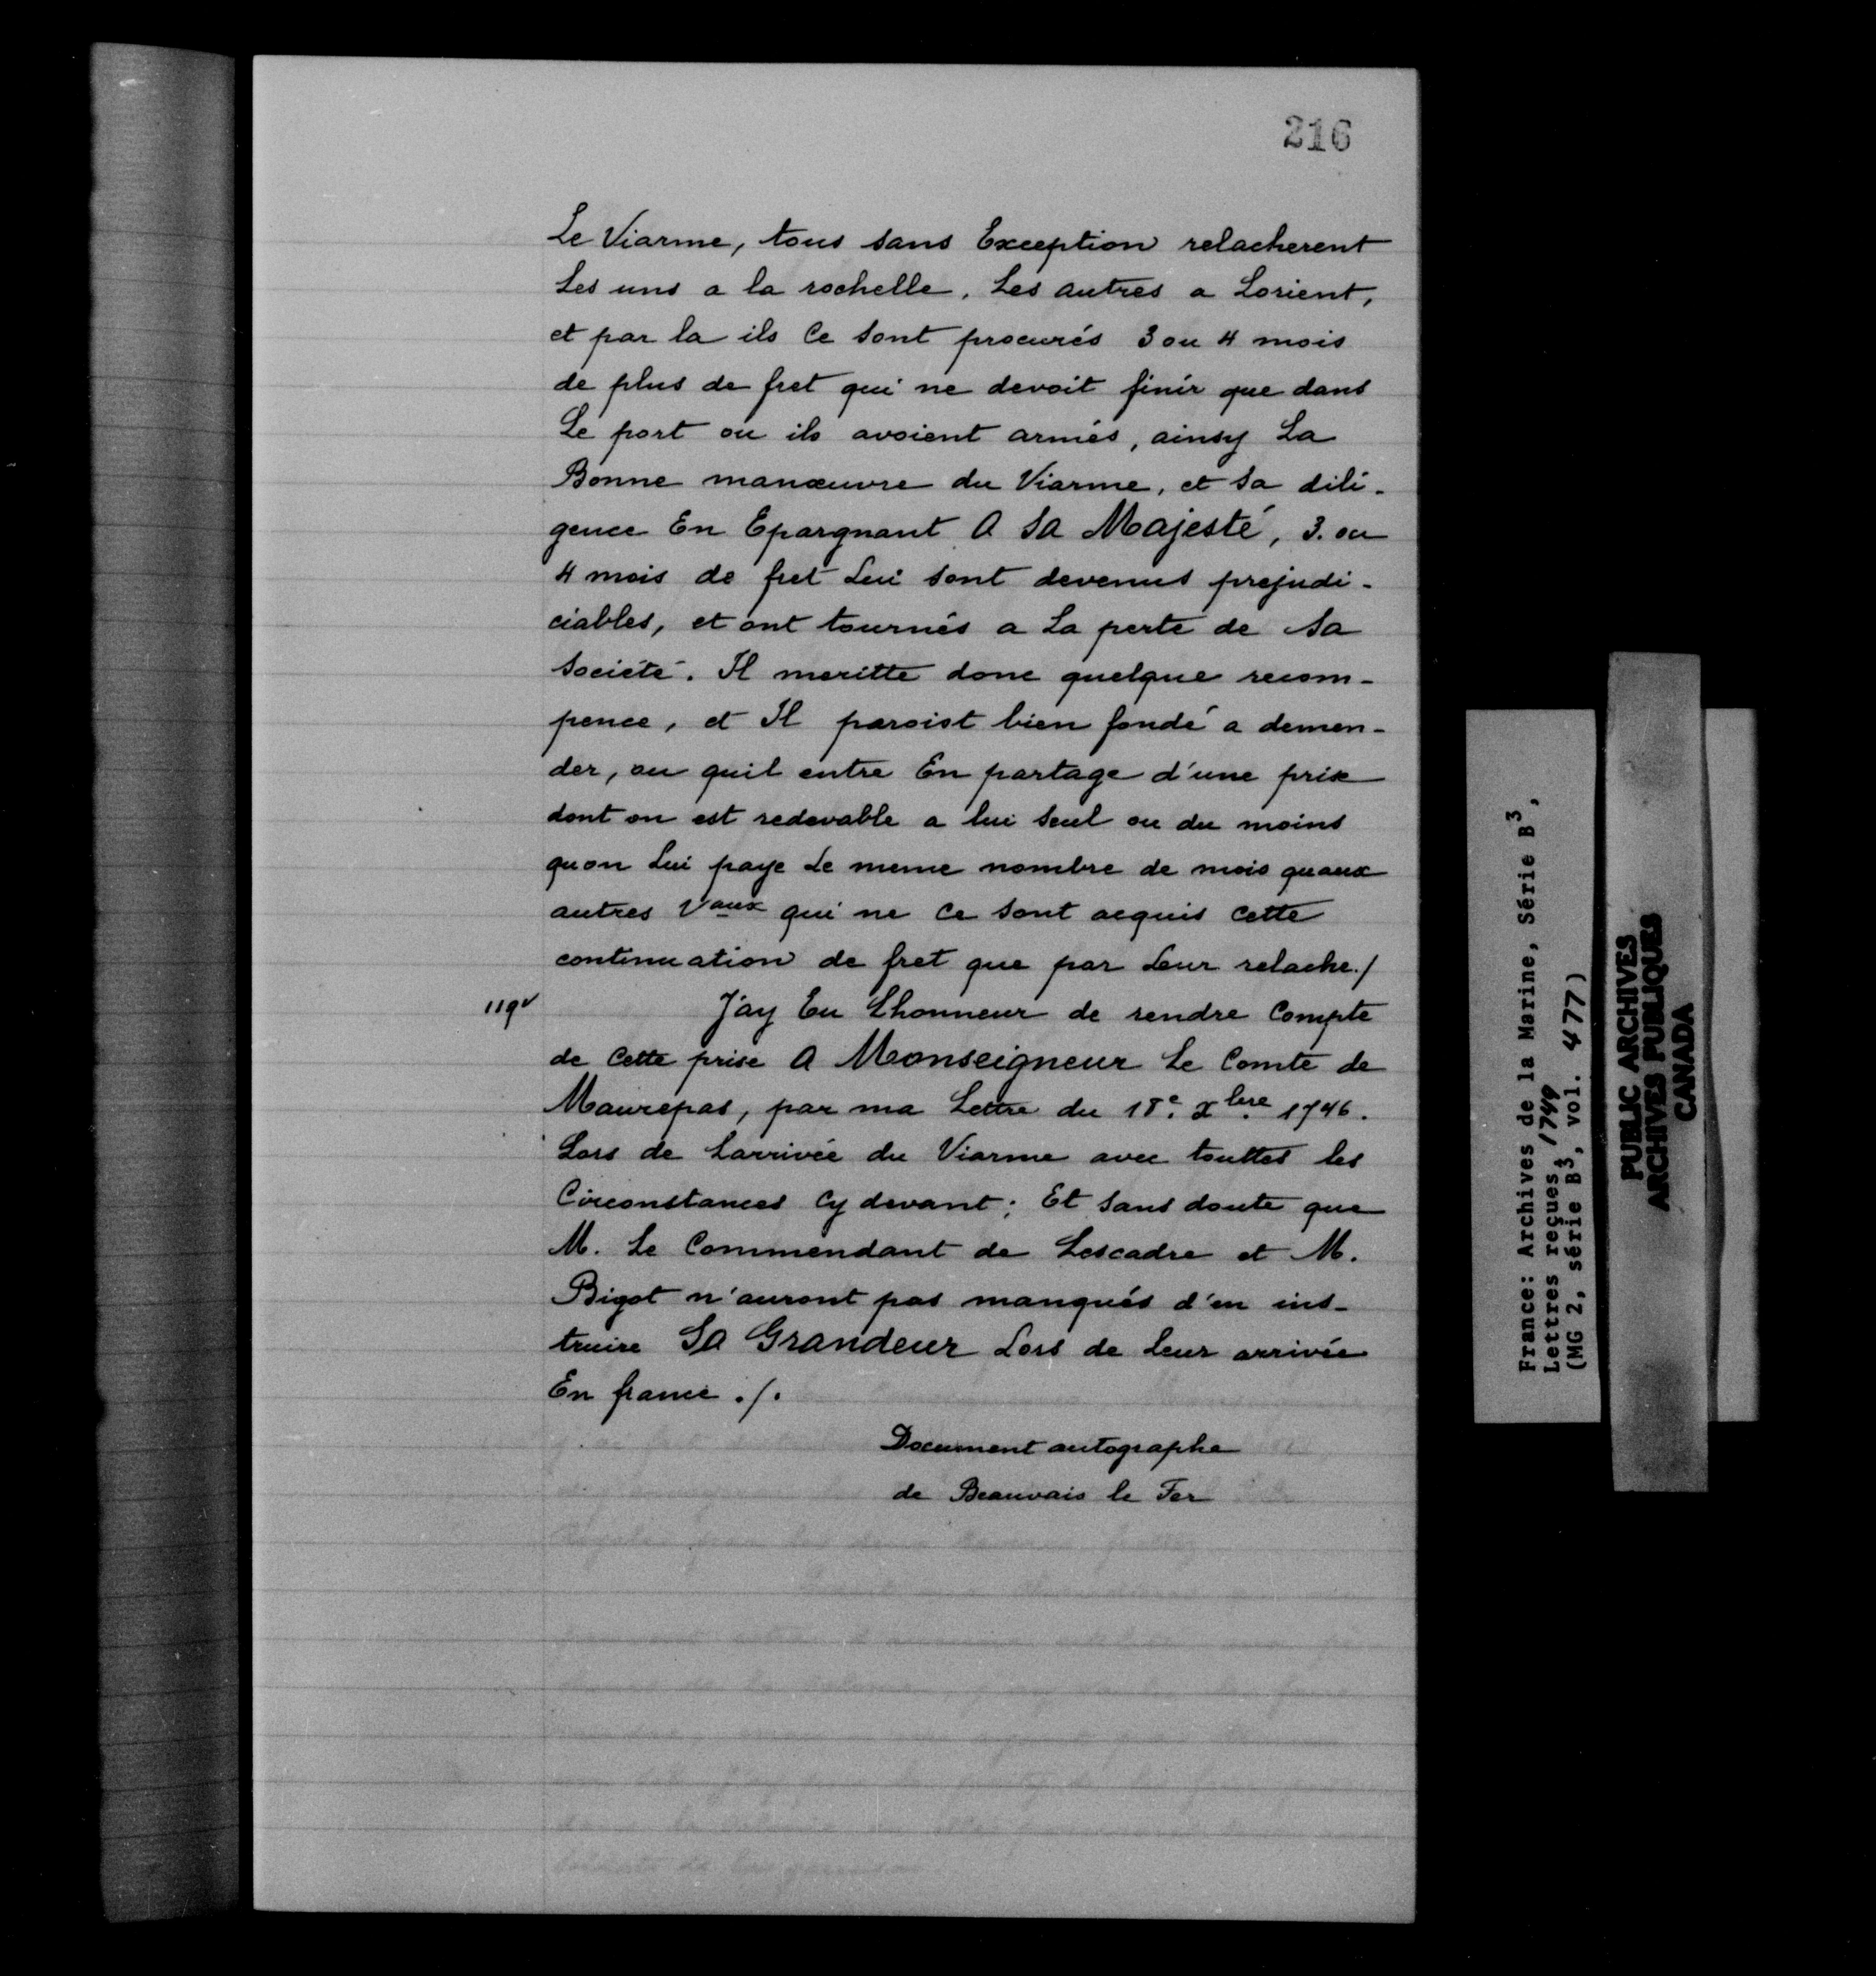 216
Le Viarme, tous sans Exception relacherent
Les uns a la rochelle, Les autres a Lorient,
et par la ils Ce sont procurés 3 ou 4 mois
de plus de fret qui ne devoit finir que dans
Le port ou ils avoient armés, ainsy La
Bonne manœuvre du Viarme, et sa dili-
gence En Epargnant A SA Majesté, 3. ou
4 mois de fret Lui sont devenus prejudi-
ciables, et ont tournés a La perte de sa
société. Il meritte donc quelque recom-
pence, et Il paroist bien fondé a demen-
der, ou quil entre En partage d'une prise
dont on est redevable a lui seul ou du moins
quon Lui paye Le meme nombre de mois quaux
autres Vaux qui ne Ce sont acquis cette
continuation de fret que par Leur relache./
119v
J'ay Eu Lhonneur de rendre Compte
de Cette prise A Monseigneur Le Comte de
Maurepas, par ma Lettre du 18e. Xbre 1746.
Lors de Larrivée du Viarme avec touttes les
Circonstances Cy devant; Et sans doute que
M. Le Commendant de Lescadre et M.
Bigot n'auront pas manqués d'en ins-
truire SA Grandeur Lors de Leur arrivée
En france ./.
Document autographe
de Beauvais le Fer
France: Archives de la Marine, Série B3,
Lettres reçues, 1749
(MG 2, série B3, vol. 477)
PUBLIC ARCHIVES
ARCHIVES PUBLIQUES
CANADA